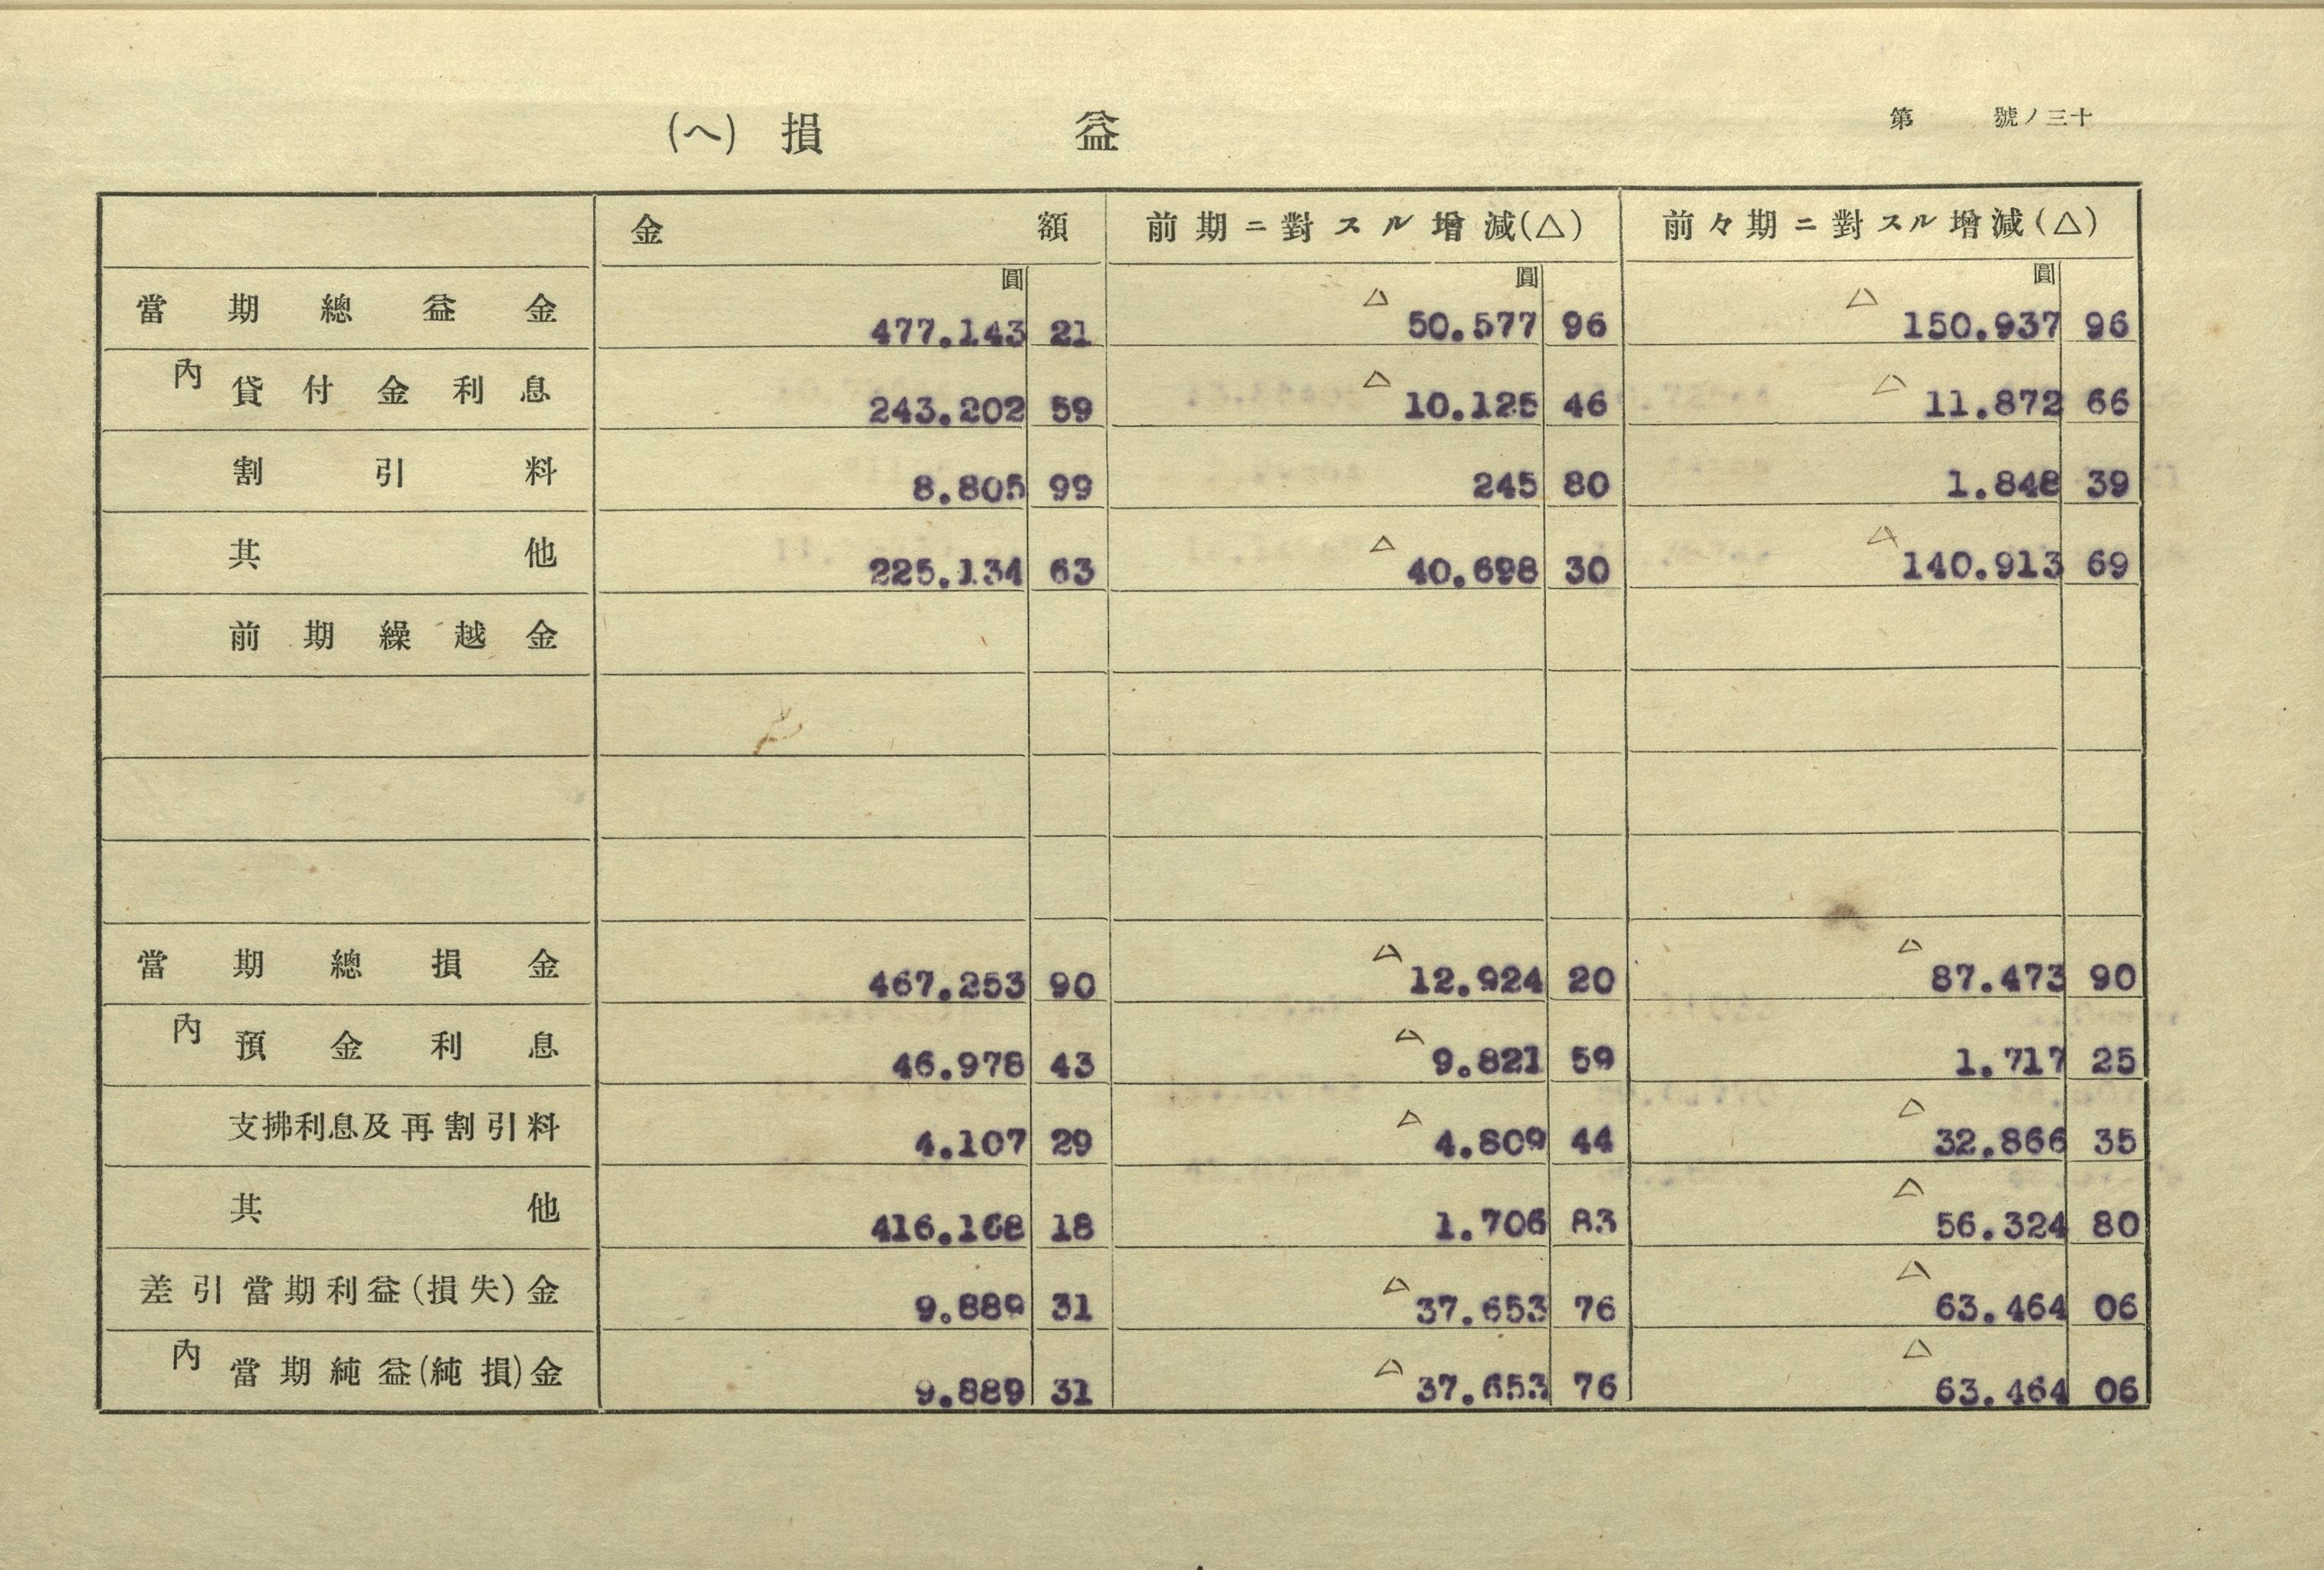 (ヘ) 損 益
第 號ノ三十
金 額 前期ニ對スル增減(△) 前々期ニ對スル增減(△)
圓 圓 圓
當期總益金 477.143 21 △ 50.577 96 △ 150.937 96
內 貸付金利息 243.202 59 △ 10.125 46 △ 11.872 66
割引料 8.805 99 245 80 1.848 39
其他 225.134 63 △ 40.698 30 △ 140.913 69
前期繰越金
當期總損金 467.253 90 △ 12.924 20 △ 87.473 90
內 預金利息 46.978 43 △ 9.821 59 1.717 25
支拂利息及再割引料 4.107 29 △ 4.809 44 △ 32.866 35
其他 416.168 18 1.706 83 △ 56.324 80
差引當期利益(損失)金 9.889 31 △ 37.653 76 △ 63.464 06
內 當期純益(純損)金 9.889 31 △ 37.653 76 △ 63.464 06